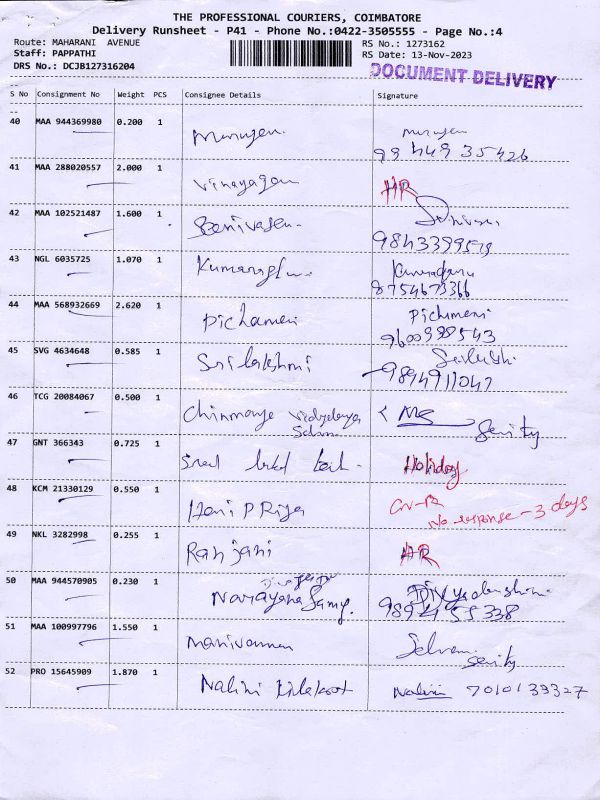 THE PROFESSIONAL COURIERS, COIMBATORE
Delivery Runsheet - P41 - Phone No.:0422-3505555 - Page No.:4
Route: MAHARANI AVENUE
RS No.: 1273162
Staff: PAPPATHI
RS Date: 13-Nov-2023
DRS No.: DCJB127316204
DOCUMENT DELIVERY
S No Consignment No Weight PCS Consignee Details Signature
40 MAA 944369980 0.200 1 Murugen Murugen
99449 35426
41 MAA 288020557 2.000 1 Vinayagan HR
42 MAA 102521487 1.600 1 Senivasen
43 NGL 6035725 1.070 1
8754673366
44 MAA 568932669 2.620 1 Pichameni Pichimeni
9600999543
45 SVG 4634648 0.585 1 Srilakshmi
9894911047
46 TCG 20084067 0.500 1 Chinmaya Vidyalaya MS
Serity
47 GNT 366343 0.725 1 Holiday
48 KCM 21330129 0.550 1 Hari P Riya
No response - 3 days
49 NKL 3282998 0.255 1 Ranjani HR
50 MAA 944570905 0.230 1 Narayana Samy
51 MAA 100997796 1.550 1 Manivannan Selvam
Serity
52 PRO 15645909 1.870 1 Nalini Nalini 7010139327